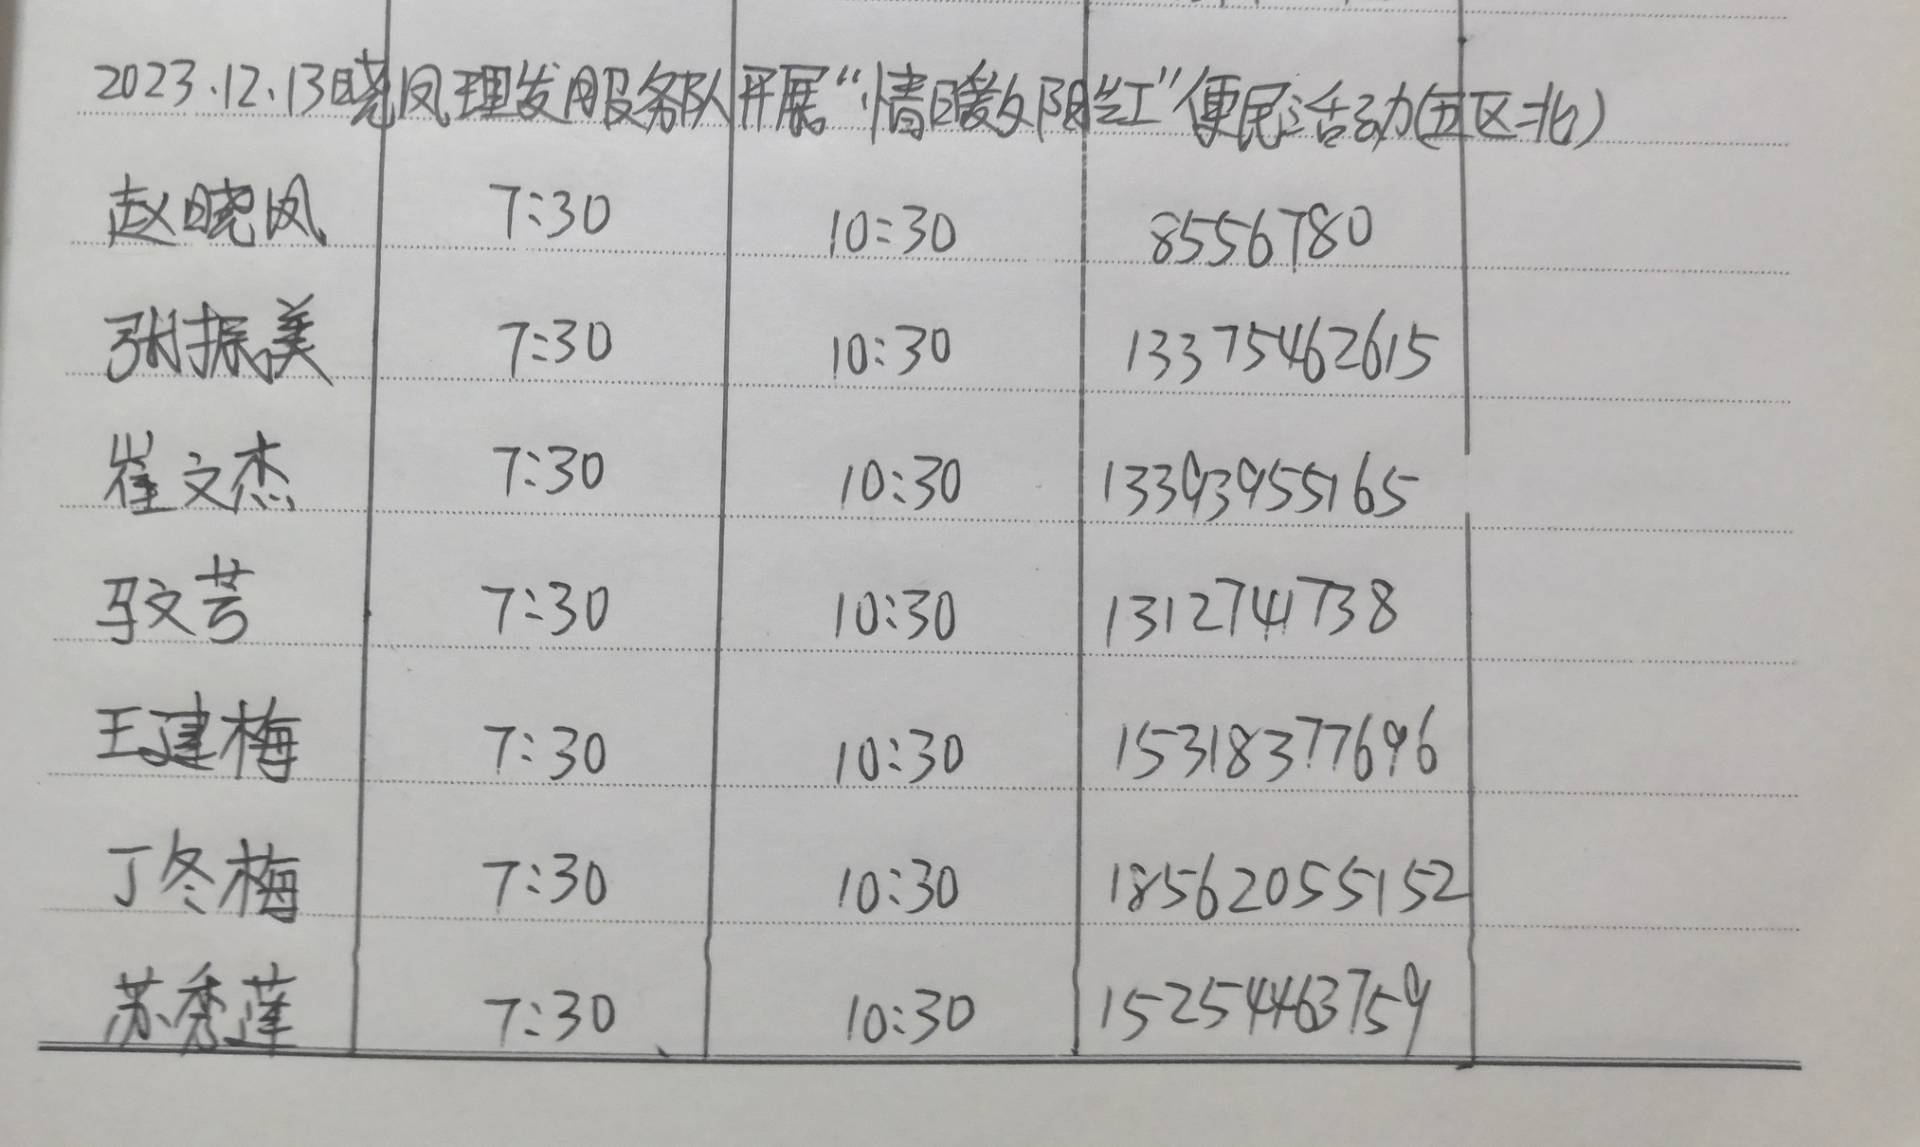 2023.12.13晓凤理发服务队开展“情暖夕阳红”便民活动(五区北)
赵晓凤 7:30 10:30 8556780
张振美 7:30 10:30 13375462615
崔文杰 7:30 10:30 13393955165
马文芳 7:30 10:30 1312741738
王建梅 7:30 10:30 15318377696
丁冬梅 7:30 10:30 18562055152
苏秀莲 7:30 10:30 15254463759